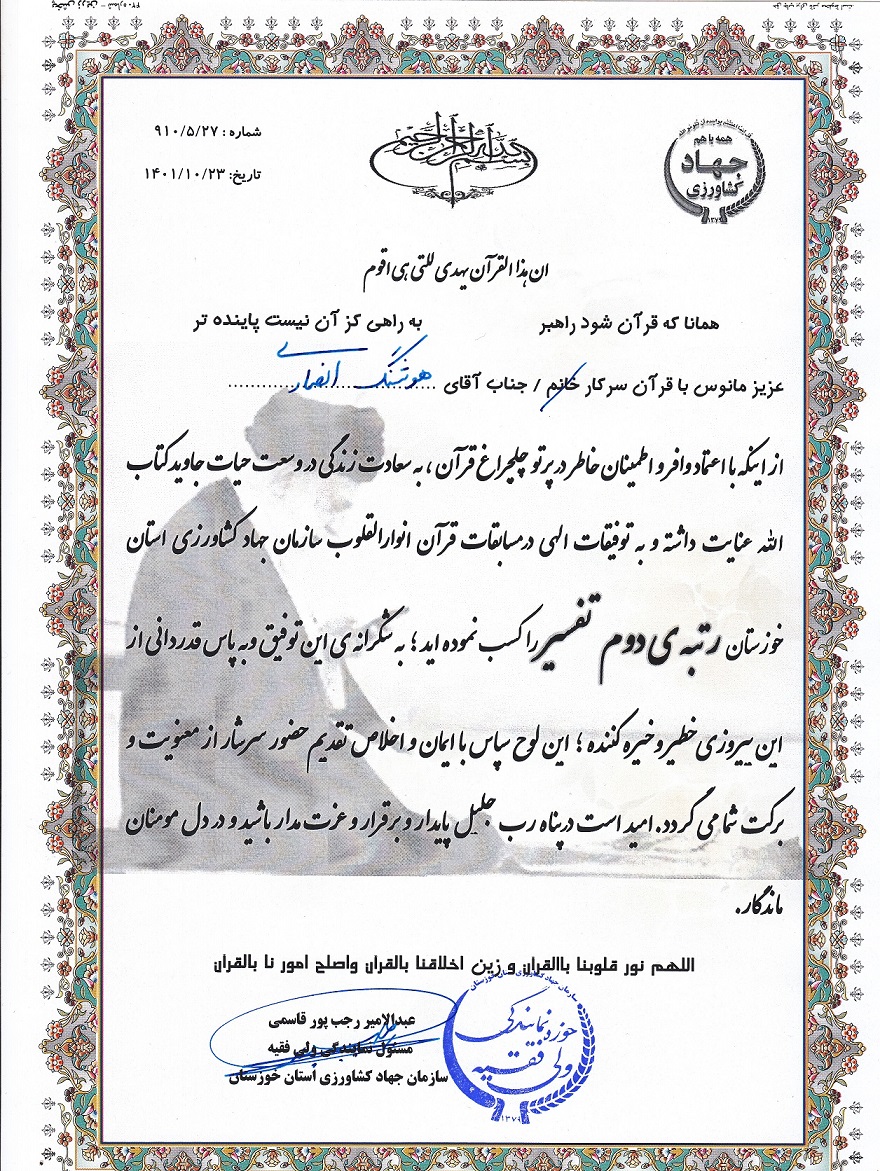 بسم الله الرحمن الرحیم
همه با هم
جهاد
کشاورزی
۱۳۷۹
شماره : ۹۱۰/۵/۲۷
تاریخ: ۱۴۰۱/۱۰/۲۳
ان هذا القرآن یهدی للتی هی اقوم
همانا که قرآن شود راهبر به راهی کز آن نیست پاینده تر
عزیز مانوس با قرآن سرکار خانم / جناب آقای هوشنگ انصاری
از اینکه با اعتماد وافر و اطمینان خاطر در پرتو چلچراغ قرآن ، به سعادت زندگی در وسعت حیات جاوید کتاب
الله عنایت داشته و به توفیقات الهی درمسابقات قرآن انوارالقلوب سازمان جهاد کشاورزی استان
خوزستان رتبه ی دوم تفسیر را کسب نموده اید ؛ به شکرانه ی این توفیق وبه پاس قدردانی از
این پیروزی خطیر و خیره کننده ؛ این لوح سپاس با ایمان و اخلاص تقدیم حضور سرشار از معنویت و
برکت شما می گردد. امید است درپناه رب جلیل پایدار و برقرار و عزت مدار باشید و در دل مومنان
ماندگار.
اللهم نور قلوبنا باالقران و زین اخلاقنا بالقران واصلح امور نا بالقران
عبدالامیر رجب پور قاسمی
مسئول نمایندگی ولی فقیه
سازمان جهاد کشاورزی استان خوزستان
سازمان جهاد کشاورزی استان خوزستان
حوزه نمایندگی
ولی فقیه
۱۳۷۹